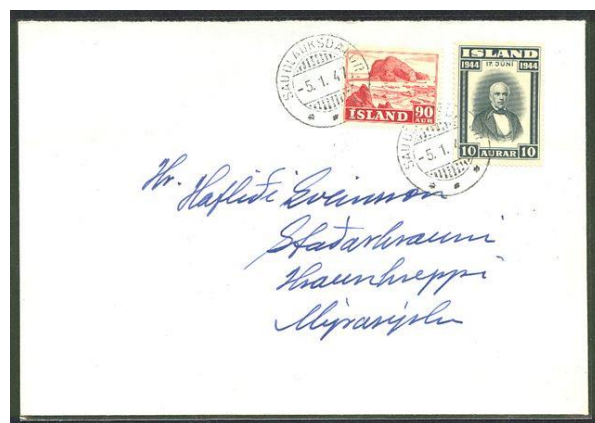 SAUÐLAUKSDALUR
-5.1.47
ÍSLAND 90
AUR
ÍSLAND
1944 17. JÚNÍ 1944
10 AURAR 10
-5.1.4
Hr. Hafliði Sveinsson
Staðarhrauni
Hraunhreppi
Mýrasýslu